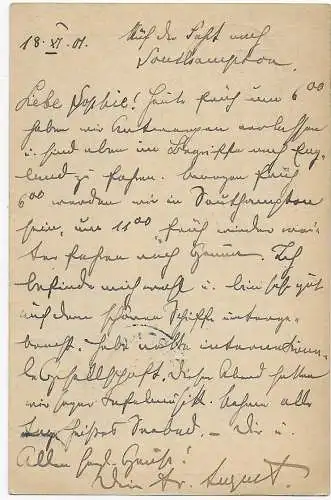 18. XI. 01. Auf der Fahrt nach
Southampton.
Liebe Sophie! Heute früh um 6 00
haben wir Antwerpen verlassen
u. sind eben im Begriffe nach Eng-
land zu fahren. Morgen früh
6 00 werden wir in Southampton
sein, um 11 00 früh wieder wei-
ter fahren nach Genua. Ich
befinde mich wohl u. bin sehr gut
auf dem schönen Schiffe unterge-
bracht. Habe nette internationa-
le Gesellschaft. Diesen Abend hatten
wir sogar Tafelmusik. Nehme alle
Tage heißes Seebad. – Dir u.
Allen herzl. Grüße!
Dein Br. August.